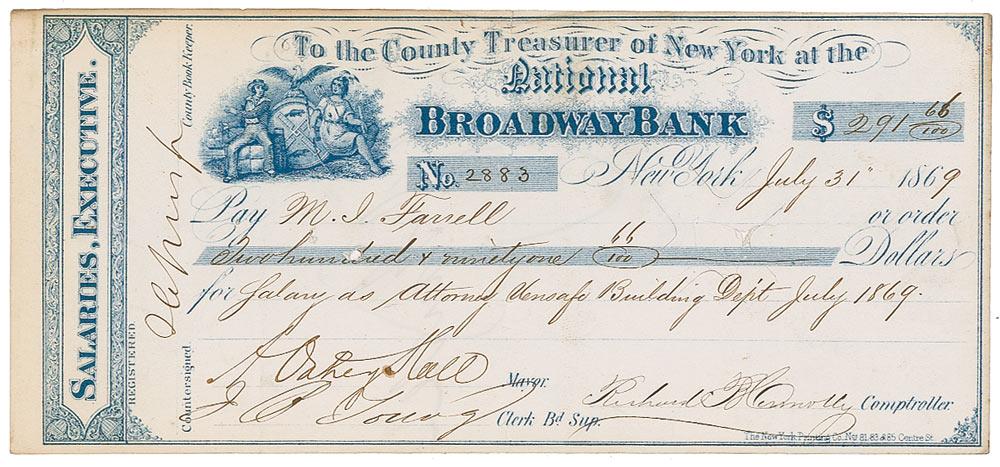 SALARIES, EXECUTIVE.
REGISTERED.
County Book-Keeper.
Countersigned
To the County Treasurer of New York at the
National
BROADWAY BANK
$ 291 66/100
No. 2883
New York July 31" 1869
Pay M. J. Farrell or order
Two hundred & ninety one 66/100 Dollars
for Salary as Attorney Unsafe Building Dept July 1869.
A Oakey Hall Mayor.
Richard B Connolly Comptroller.
J B Young Clerk Bd Sup.
The New York Printing Co. Nos 81, 83 & 85 Centre St.